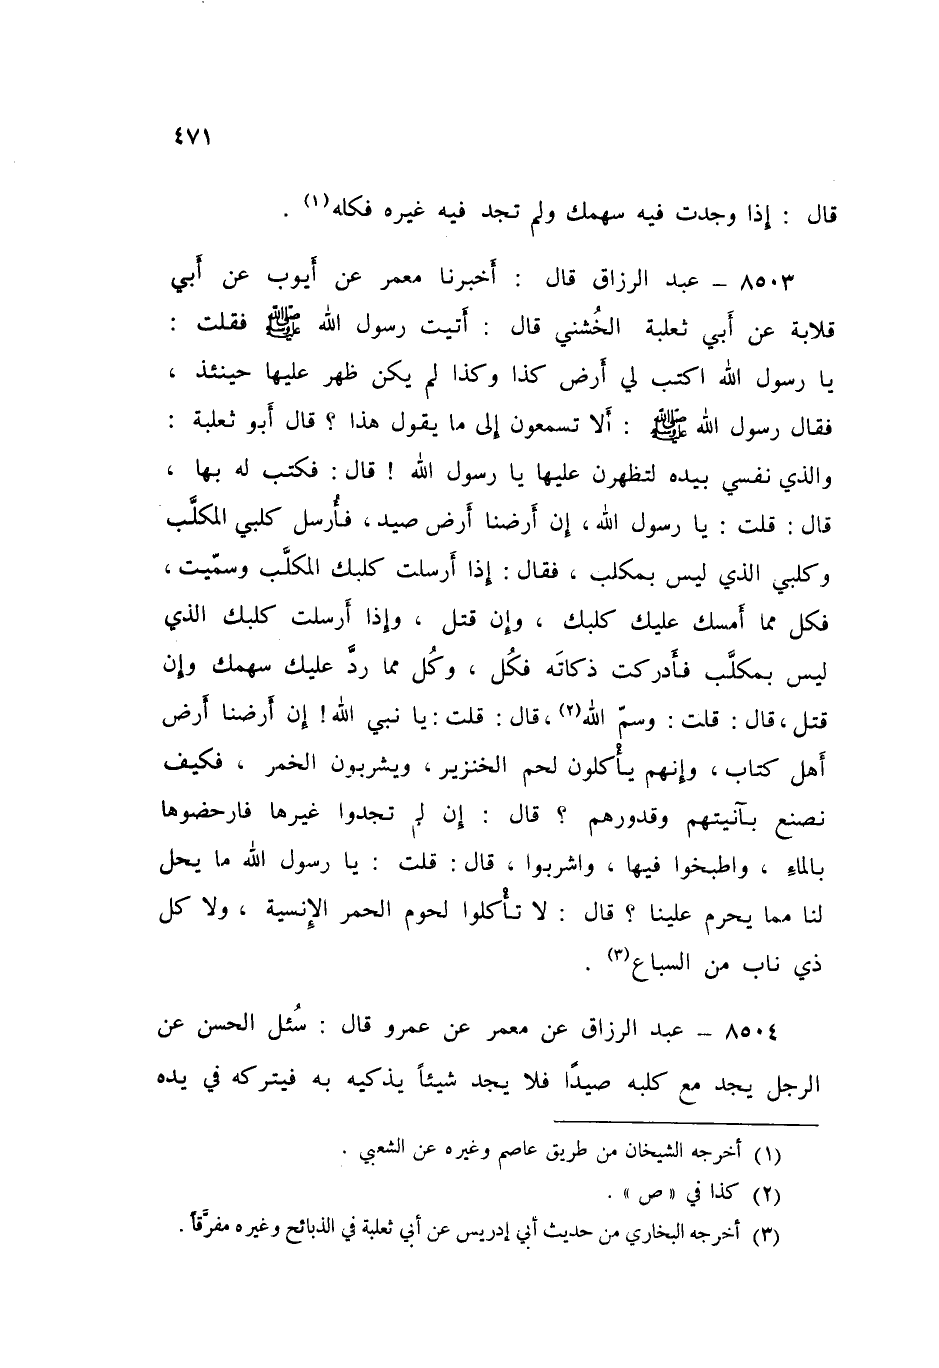 ٤٧١
قال : إذا وجدت فيه سهمك ولم تجد فيه غيره فكله(١) .
٨٥٠٣ – عبد الرزاق قال : أخبرنا معمر عن أيوب عن أبي
قلابة عن أبي ثعلبة الخُشني قال : أتيت رسول الله ﷺ فقلت :
يا رسول الله اكتب لي أرض كذا وكذا لم يكن ظهر عليها حينئذ ،
فقال رسول الله ﷺ : ألا تسمعون إلى ما يقول هذا ؟ قال أبو ثعلبة :
والذي نفسي بيده لتظهرن عليها يا رسول الله ! قال : فكتب له بها ،
قال : قلت : يا رسول الله ، إن أرضنا أرض صيد ، فأُرسل كلبي المكلَّب
وكلبي الذي ليس بمكلب ، فقال : إذا أرسلت كلبك المكلَّب وسمّيت ،
فكل مما أمسك عليك كلبك ، وإن قتل ، وإذا أرسلت كلبك الذي
ليس بمكلَّب فأدركت ذكاتَه فكُل ، وكُل مما ردَّ عليك سهمك وإن
قتل ، قال : قلت : وسمّ الله(٢) ، قال : قلت : يا نبي الله ! إن أرضنا أرض
أهل كتاب ، وإنهم يأْكلون لحم الخنزير ، ويشربون الخمر ، فكيف
نصنع بآنيتهم وقدورهم ؟ قال : إن لم تجدوا غيرها فارحضوها
بالماء ، واطبخوا فيها ، واشربوا ، قال : قلت : يا رسول الله ما يحل
لنا مما يحرم علينا ؟ قال : لا تأْكلوا لحوم الحمر الإنسية ، ولا كل
ذي ناب من السباع(٣) .
٨٥٠٤ – عبد الرزاق عن معمر عن عمرو قال : سُئل الحسن عن
الرجل يجد مع كلبه صيدًا فلا يجد شيئاً يذكيه به فيتركه في يده
(١) أخرجه الشيخان من طريق عاصم وغيره عن الشعبي .
(٢) كذا في « ص » .
(٣) أخرجه البخاري من حديث أبي إدريس عن أبي ثعلبة في الذبائح وغيره مفرَّقاً .